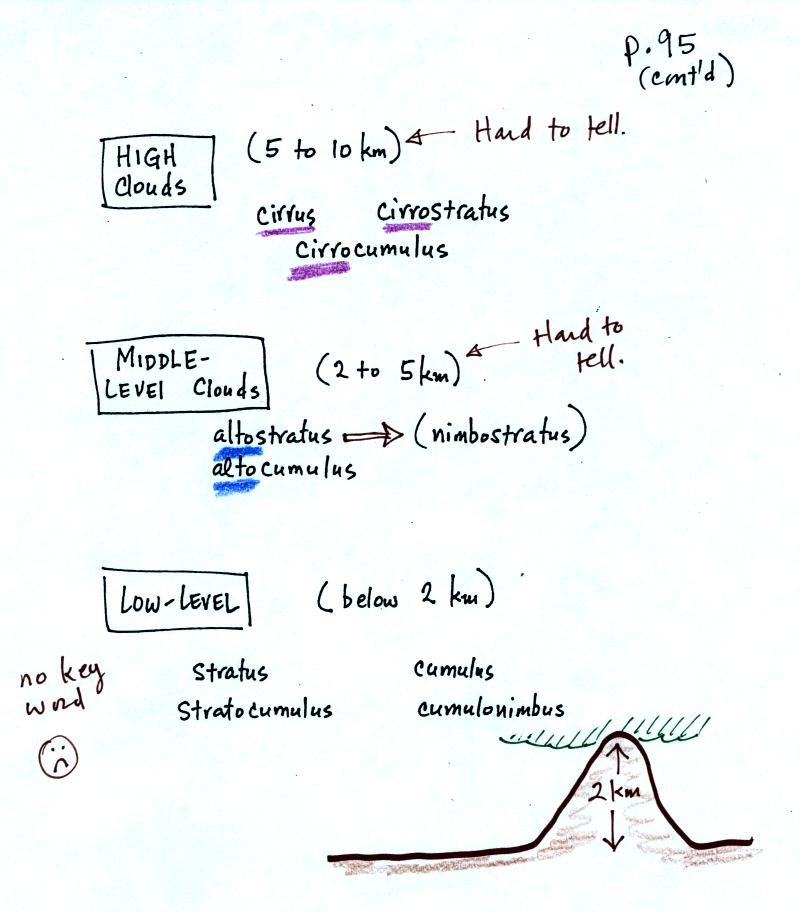 p.95
(cont'd)
HIGH
Clouds
(5 to 10 km)
Hard to tell.
cirrus
cirrostratus
cirrocumulus
MIDDLE-
LEVEL Clouds
(2 to 5 km)
Hard to
tell.
altostratus
(nimbostratus)
altocumulus
LOW-LEVEL
(below 2 km)
no key
word
stratus
cumulus
stratocumulus
cumulonimbus
2 km